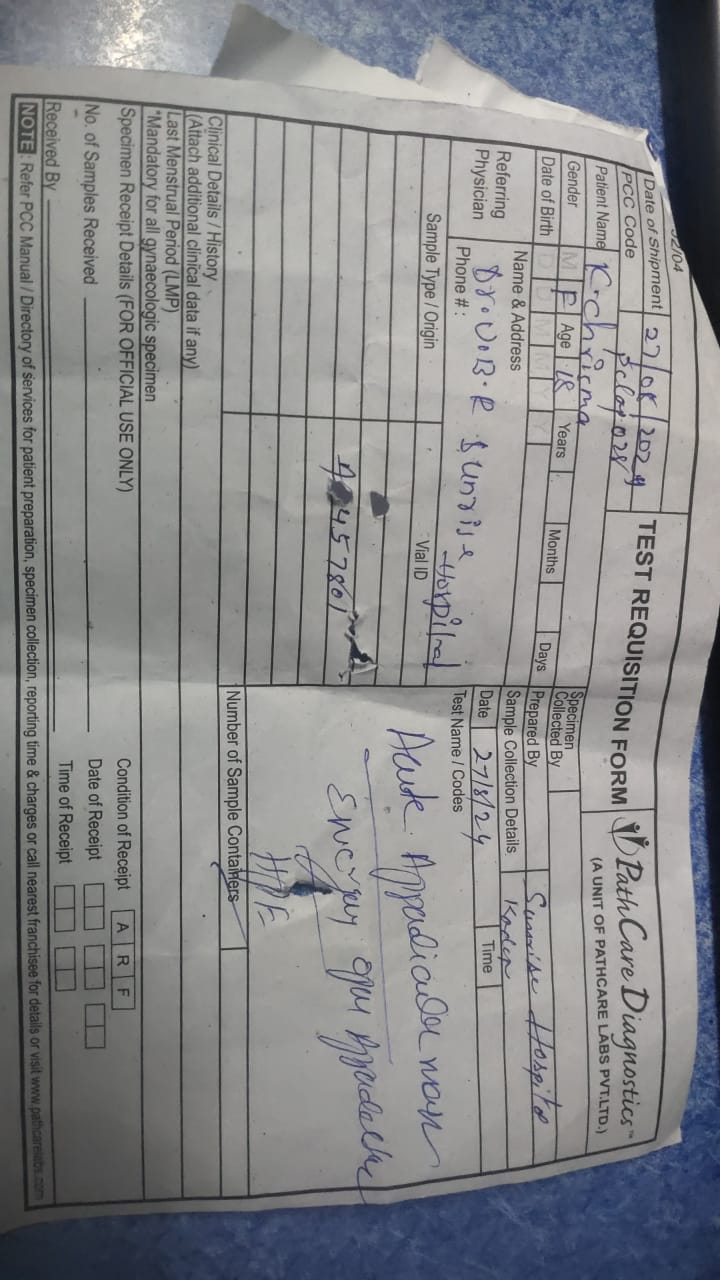 TEST REQUISITION FORM
PathCare Diagnostics™
(A UNIT OF PATHCARE LABS PVT.LTD.)
Date of Shipment 27/08/2024
PCC Code
Patient Name K. Chrisma
Gender M F Age 18 Years Months Days
Date of Birth D D M M Y Y
Specimen Collected By
Prepared By Sunrise Hospital
Sample Collection Details Kadapa
Date 27/8/24 Time
Referring Physician
Name & Address
Dr. V.B.R Sunrise Hospital
Phone #:
Sample Type / Origin
Vial ID
Test Name / Codes
Acute Appendicular mass
Emergency open Appendectomy
HPE
457801
Number of Sample Containers
Clinical Details / History
(Attach additional clinical data if any)
Last Menstrual Period (LMP)
*Mandatory for all gynaecologic specimen
Specimen Receipt Details (FOR OFFICIAL USE ONLY)
Condition of Receipt A R F
No. of Samples Received
Date of Receipt
Received By
Time of Receipt
NOTE: Refer PCC Manual / Directory of services for patient preparation, specimen collection, reporting time & charges or call nearest franchisee for details or visit www.pathcarelabs.com